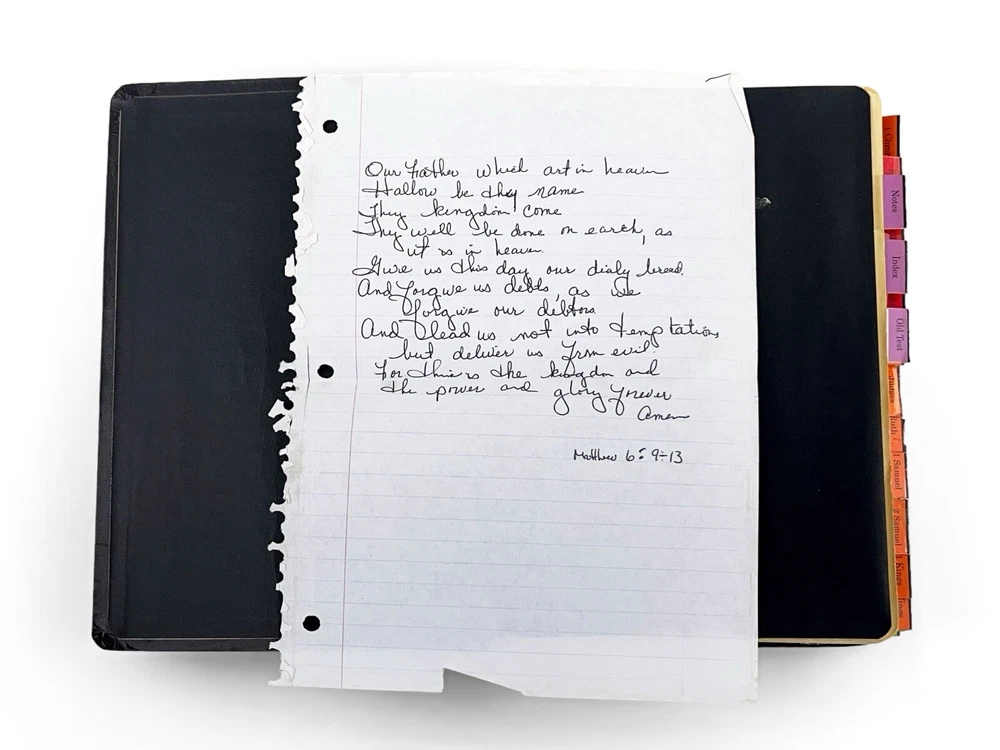 Our Father which art in heaven
Hallow be thy name
Thy kingdom come
Thy will be done on earth, as
it is in heaven.
Give us this day our dialy bread.
And forgive us debts, as we
forgive our debtors
And lead us not into temptation,
but deliver us frm evil.
For thine is the kingdm and
the power and glory forever
Amen
Matthew 6:9-13
Notes
Index
Old Test
Ruth
1 Samuel
2 Samuel
1 Kings